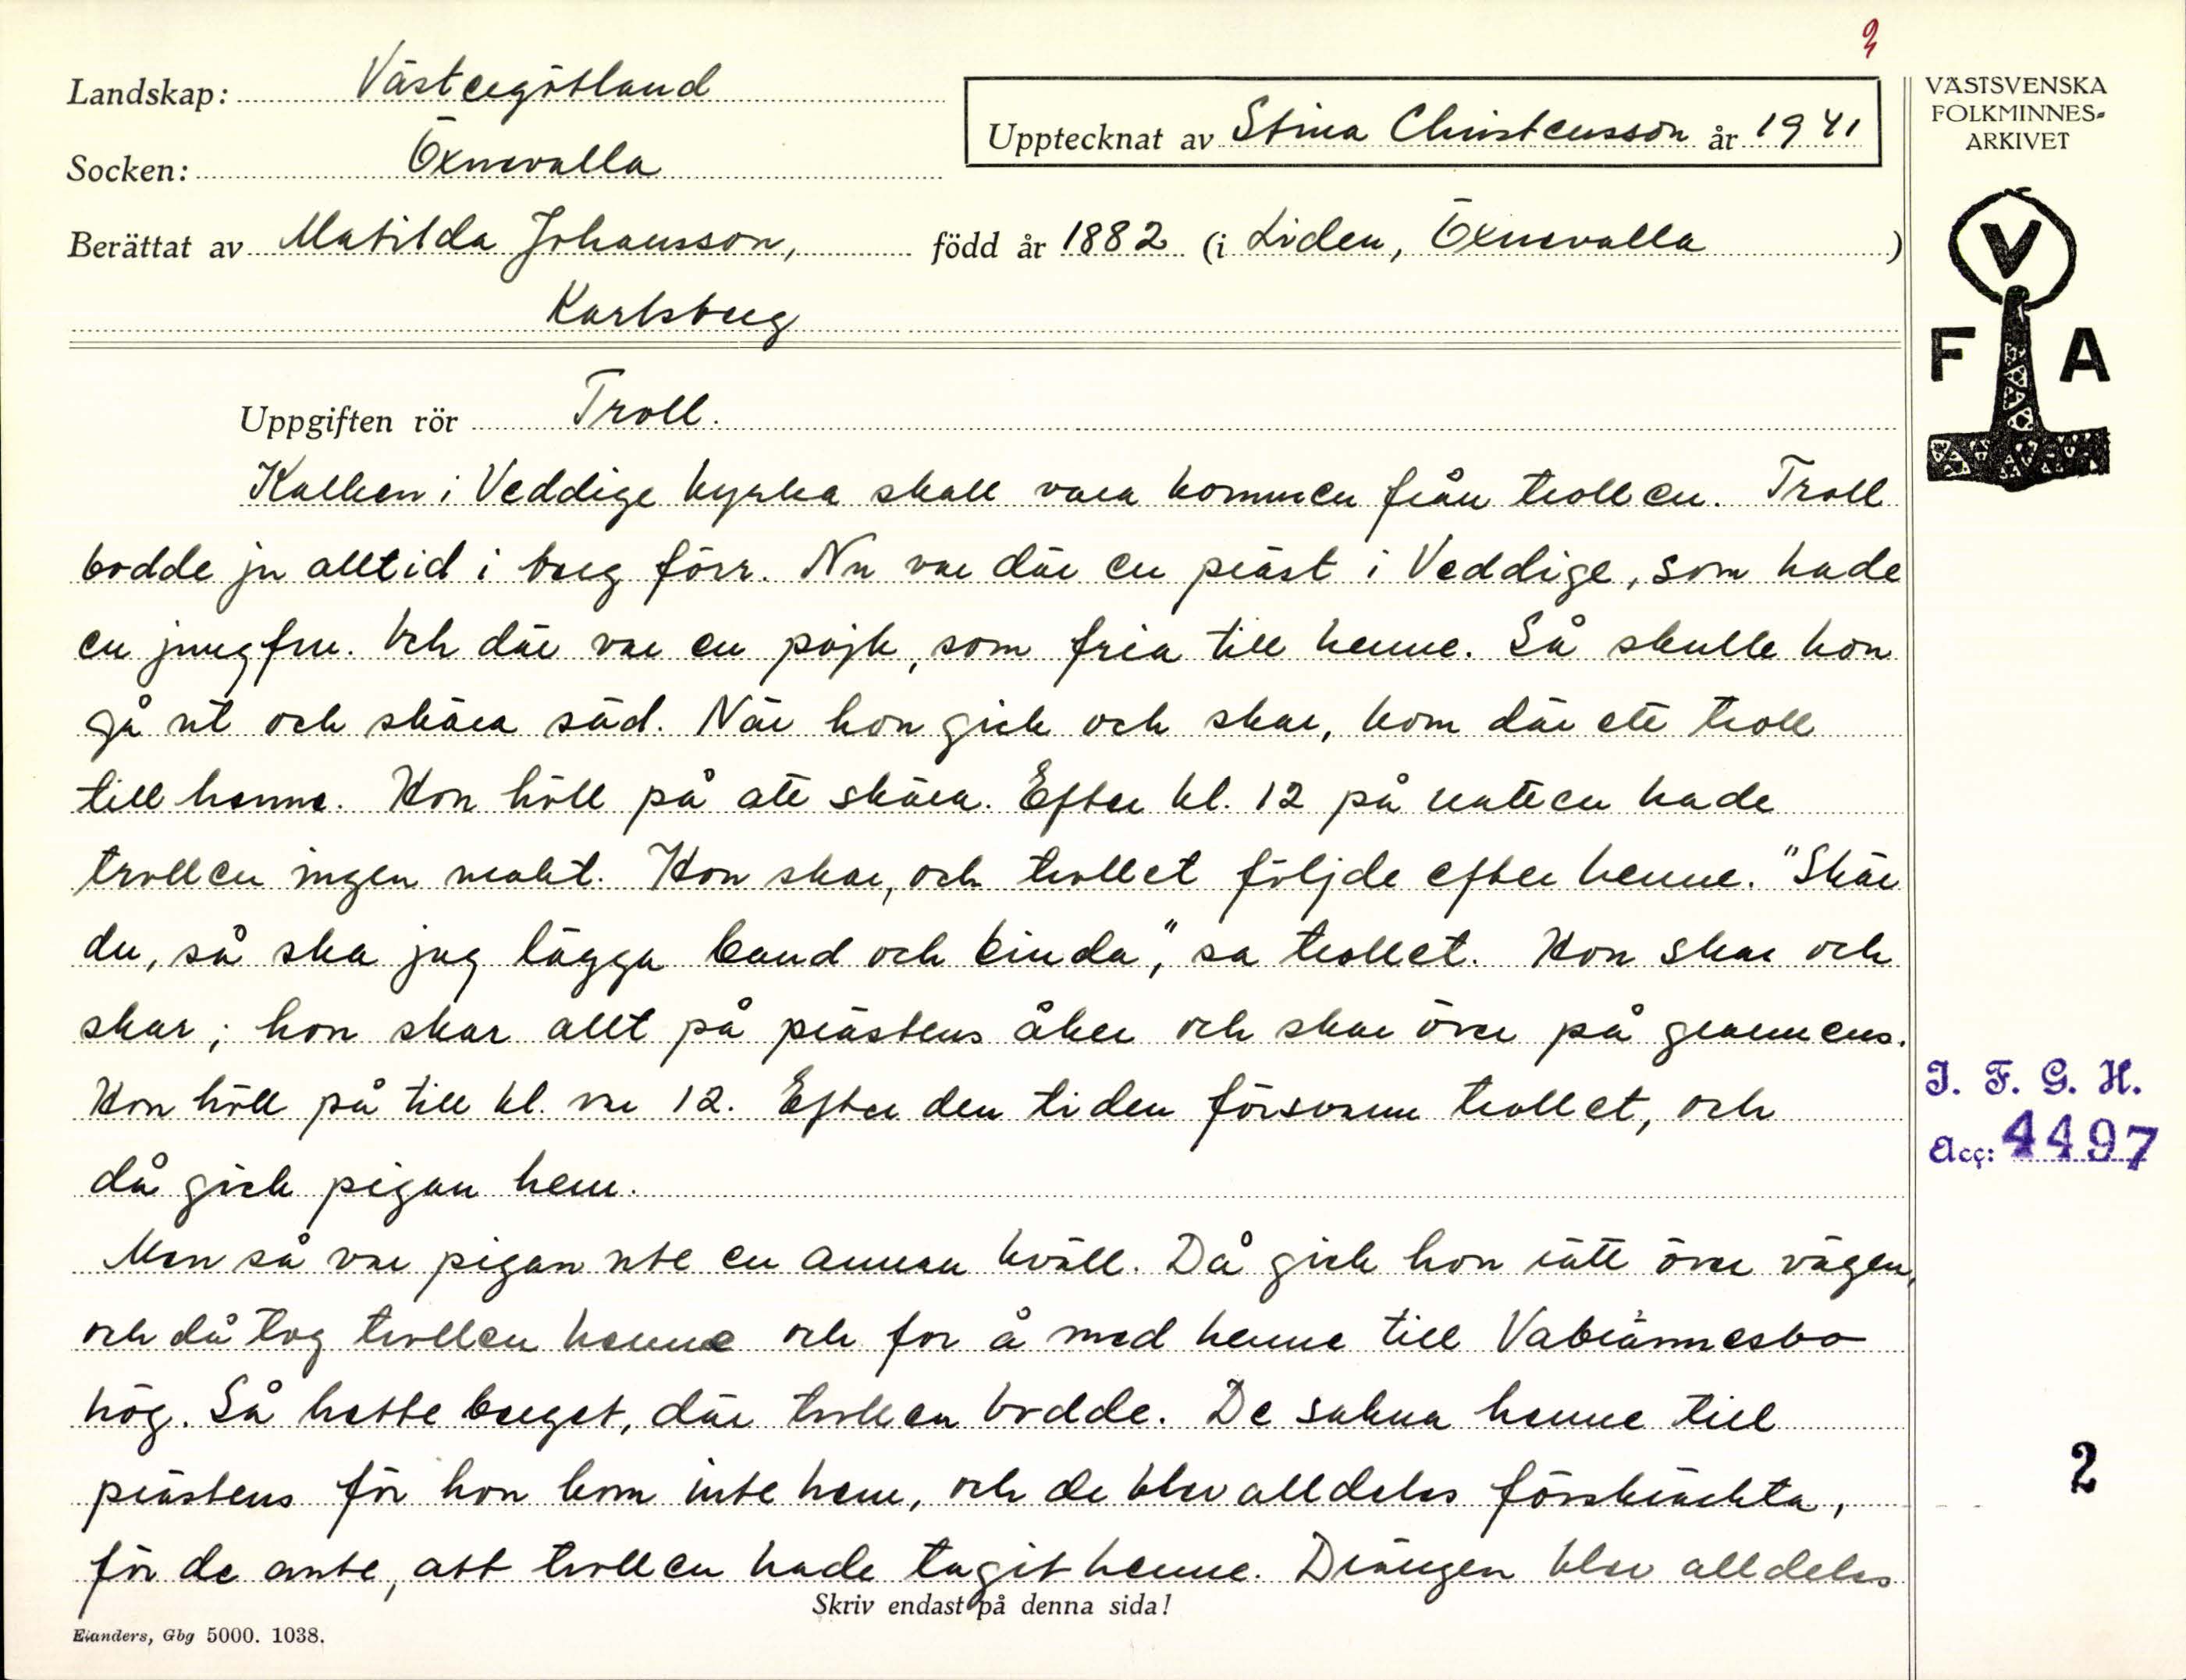 3
Landskap: Västergötland
Socken: Öxnevalla
Upptecknat av Stina Christensson år 1941
Berättat av Matilda Johansson, född år 1882 (i Liden, Öxnevalla)
Karlsberg
VÄSTSVENSKA
FOLKMINNES-
ARKIVET
V
F A
Uppgiften rör Troll.
Kalken i Veddige kyrka skall vara kommen från trollen. Troll
bodde ju alltid i berg förr. Nu var där en präst i Veddige, som hade
en jungfru. Och där var en pojk, som fria till henne. Så skulle hon
gå ut och skära säd. När hon gick och skar, kom där ett troll
till henne. Hon höll på att skära. Efter kl. 12 på natten hade
trollen ingen makt. Hon skar, och trollet följde efter henne. "Skär
du, så ska jag lägga band och binda", sa trollet. Hon skar och
skar; hon skar allt på prästens åker och skar över på grannens.
Hon höll på till kl. var 12. Efter den tiden försvann trollet, och
då gick pigan hem.
Men så var pigan ute en annan kväll. Då gick hon rätt över vägen,
och då tog trollen henne och for å med henne till Vabrännesbo
hög. Så hette berget, där trollen bodde. De sakna henne till
prästens för hon kom inte hem, och de blev alldeles förskräckta,
för de ante, att trollen hade tagit henne. Drängen blev alldeles
Skriv endast på denna sida!
Elanders, Gbg 5000. 1038.
I. F. G. H.
Acc: 4497
2